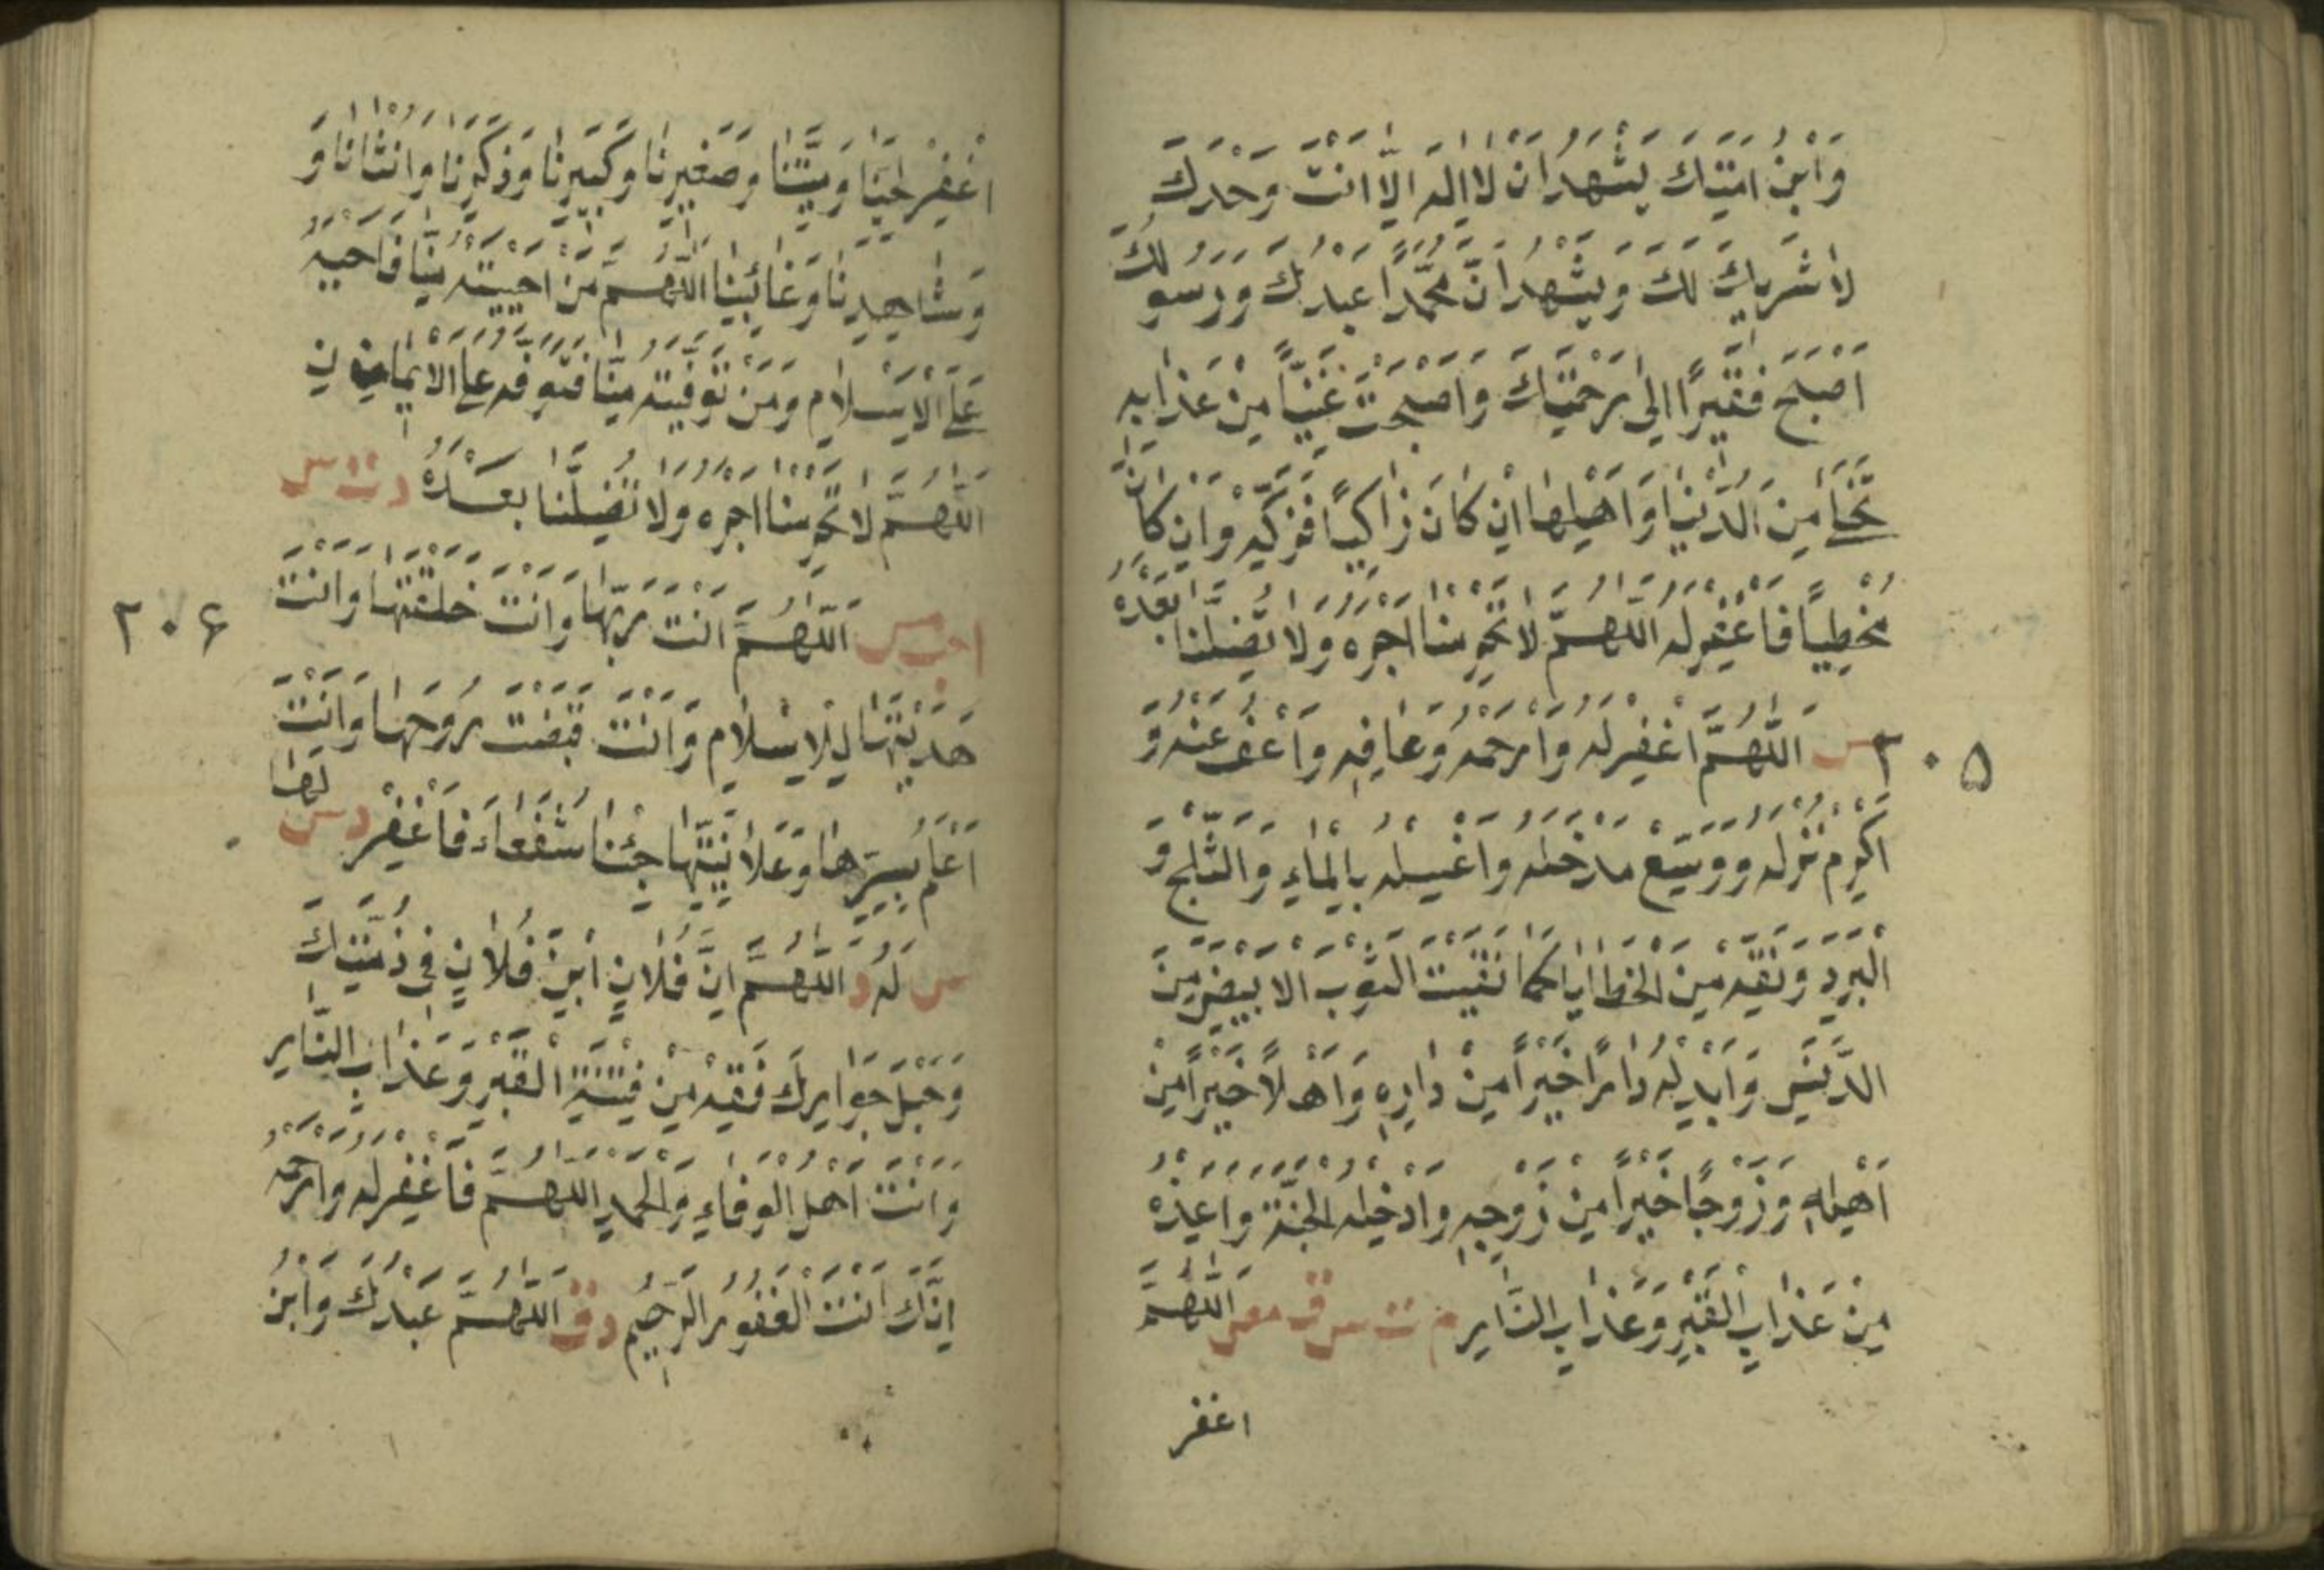 وَابْنُ اَمَتِكَ يَشْهَدُ اَنْ لَا اِلٰهَ اِلَّا اَنْتَ وَحْدَكَ
لَا شَرِيكَ لَكَ وَيَشْهَدُ اَنَّ مُحَمَّدًا عَبْدُكَ وَرَسُولُكَ
اَصْبَحَ فَقِيرًا اِلٰى رَحْمَتِكَ وَاَصْبَحْتَ غَنِيًّا مِنْ عَذَابِهِ
تَخَلّٰى مِنَ الدُّنْيَا وَاَهْلِهَا اِنْ كَانَ زَاكِيًا فَزَكِّهِ وَاِنْ كَانَ
مُخْطِيًا فَاغْفِرْ لَهُ اَللّٰهُمَّ لَا تَحْرِمْنَا اَجْرَهُ وَلَا تُضِلَّنَا بَعْدَهُ
٢٠٥
مس اَللّٰهُمَّ اغْفِرْ لَهُ وَارْحَمْهُ وَعَافِهِ وَاعْفُ عَنْهُ وَ
اَكْرِمْ نُزُلَهُ وَوَسِّعْ مَدْخَلَهُ وَاغْسِلْهُ بِالْمَاءِ وَالثَّلْجِ وَ
الْبَرَدِ وَنَقِّهِ مِنَ الْخَطَايَا كَمَا نَقَّيْتَ الثَّوْبَ الْاَبْيَضَ مِنَ
الدَّنَسِ وَاَبْدِلْهُ دَارًا خَيْرًا مِنْ دَارِهِ وَاَهْلًا خَيْرًا مِنْ
اَهْلِهِ وَزَوْجًا خَيْرًا مِنْ زَوْجِهِ وَاَدْخِلْهُ الْجَنَّةَ وَاَعِذْهُ
مِنْ عَذَابِ الْقَبْرِ وَعَذَابِ النَّارِ م ت س ق مص اَللّٰهُمَّ
اغفر
اغْفِرْ لِحَيِّنَا وَمَيِّتِنَا وَصَغِيرِنَا وَكَبِيرِنَا وَذَكَرِنَا وَاُنْثَانَا وَ
وَشَاهِدِنَا وَغَائِبِنَا اَللّٰهُمَّ مَنْ اَحْيَيْتَهُ مِنَّا فَاَحْيِهِ
عَلَى الْاِسْلَامِ وَمَنْ تَوَفَّيْتَهُ مِنَّا فَتَوَفَّهُ عَلَى الْاِيمَانِ
اَللّٰهُمَّ لَا تَحْرِمْنَا اَجْرَهُ وَلَا تُضِلَّنَا بَعْدَهُ د ت س
٢٠۶
ا حب مس اَللّٰهُمَّ اَنْتَ رَبُّهَا وَاَنْتَ خَلَقْتَهَا وَاَنْتَ
هَدَيْتَهَا لِلْاِسْلَامِ وَاَنْتَ قَبَضْتَ رُوحَهَا وَاَنْتَ
اَعْلَمُ بِسِرِّهَا وَعَلَانِيَتِهَا جِئْنَا شُفَعَاءَ فَاغْفِرْ لَهَا د س
س لَهُ د اَللّٰهُمَّ اِنَّ فُلَانَ ابْنَ فُلَانٍ فِي ذِمَّتِكَ
وَحَبْلِ جِوَارِكَ فَقِهِ مِنْ فِتْنَةِ الْقَبْرِ وَعَذَابِ النَّارِ
وَاَنْتَ اَهْلُ الْوَفَاءِ وَالْحَمْدِ اَللّٰهُمَّ فَاغْفِرْ لَهُ وَارْحَمْهُ
اِنَّكَ اَنْتَ الْغَفُورُ الرَّحِيمُ د ق اَللّٰهُمَّ عَبْدُكَ وَابْنُ